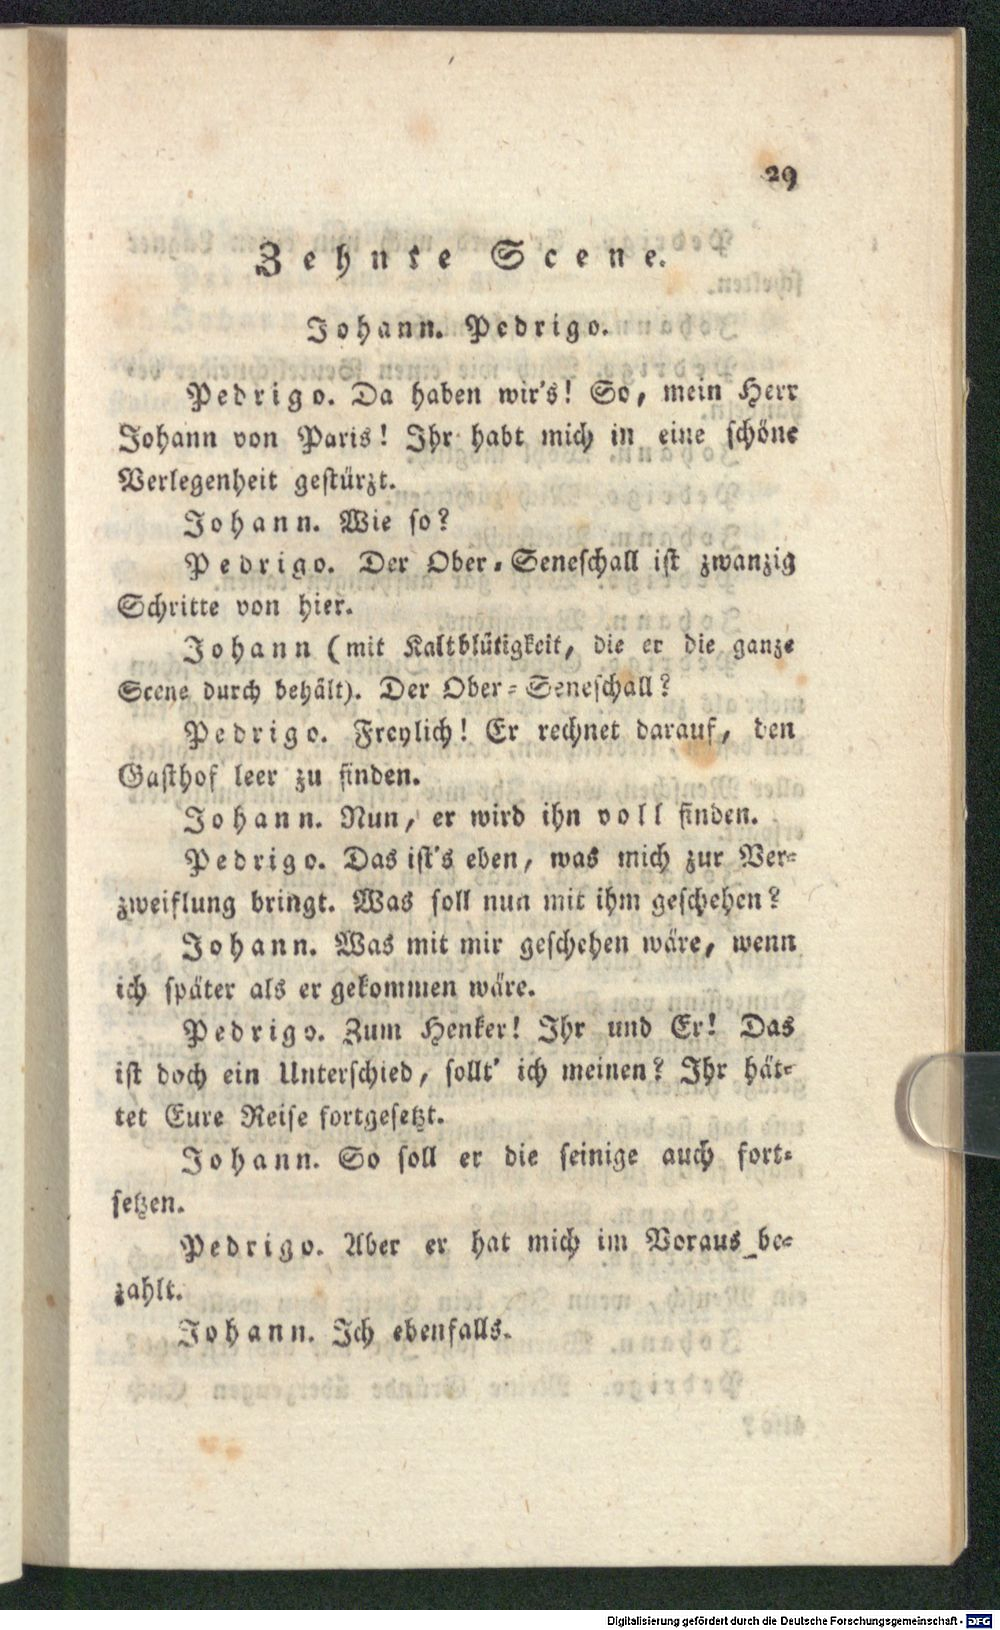 29
Zehnte Scene.
Johann. Pedrigo.
Pedrigo. Da haben wir's! So, mein Herr
Johann von Paris! Ihr habt mich in eine schöne
Verlegenheit gestürzt.
Johann. Wie so?
Pedrigo. Der Ober-Seneschall ist zwanzig
Schritte von hier.
Johann (mit Kaltblütigkeit, die er die ganze
Scene durch behält). Der Ober-Seneschall?
Pedrigo. Freylich! Er rechnet darauf, den
Gasthof leer zu finden.
Johann. Nun, er wird ihn voll finden.
Pedrigo. Das ist's eben, was mich zur Ver-
zweiflung bringt. Was soll nun mit ihm geschehen?
Johann. Was mit mir geschehen wäre, wenn
ich später als er gekommen wäre.
Pedrigo. Zum Henker! Ihr und Er! Das
ist doch ein Unterschied, sollt' ich meinen? Ihr hät-
tet Eure Reise fortgesetzt.
Johann. So soll er die seinige auch fort-
setzen.
Pedrigo. Aber er hat mich im Voraus be-
zahlt.
Johann. Ich ebenfalls.
Digitalisierung gefördert durch die Deutsche Forschungsgemeinschaft - DFG